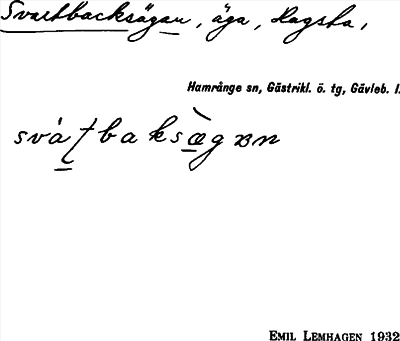 Svartbacksägan, äga, Hagsta,
Hamrånge sn, Gästrikl. ö. tg, Gävleb. l.
svàʈbaksæ̀gɑn
EMIL LEMHAGEN 1932